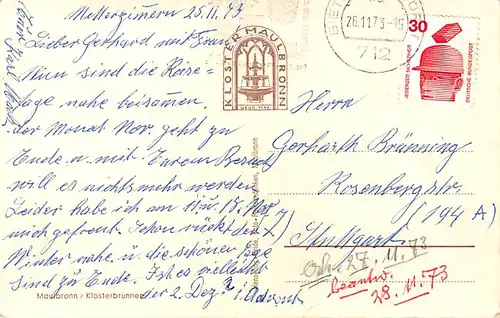 Metterzimern 25.11.73
Lieber Gerhard mit Frau
Nun sind die Reise-
tage nahe beisammen,
der Monat Nov. geht zu
Ende u. mit Eurem Besuch
will es nichts mehr werden
Leider habe ich am 11. u. 18. Nov
mich gefreut. Schon rückt der
Winter nahe u. die schönen Tage
sind zu Ende. Ist es vielleicht
der 2. Dez? 1. Advent
Eure
Karl
KLOSTER MAULBRONN
GEGR. 1147
26.11.73-15
712
30
JEDERZEIT SICHERHEIT
DEUTSCHE BUNDESPOST
Herrn
Gerhardt Brünning
Rosenbergstr.
(194 A)
7) Stuttgart
27.11.73
beantw.
28.11.73
Maulbronn / Klosterbrunnen